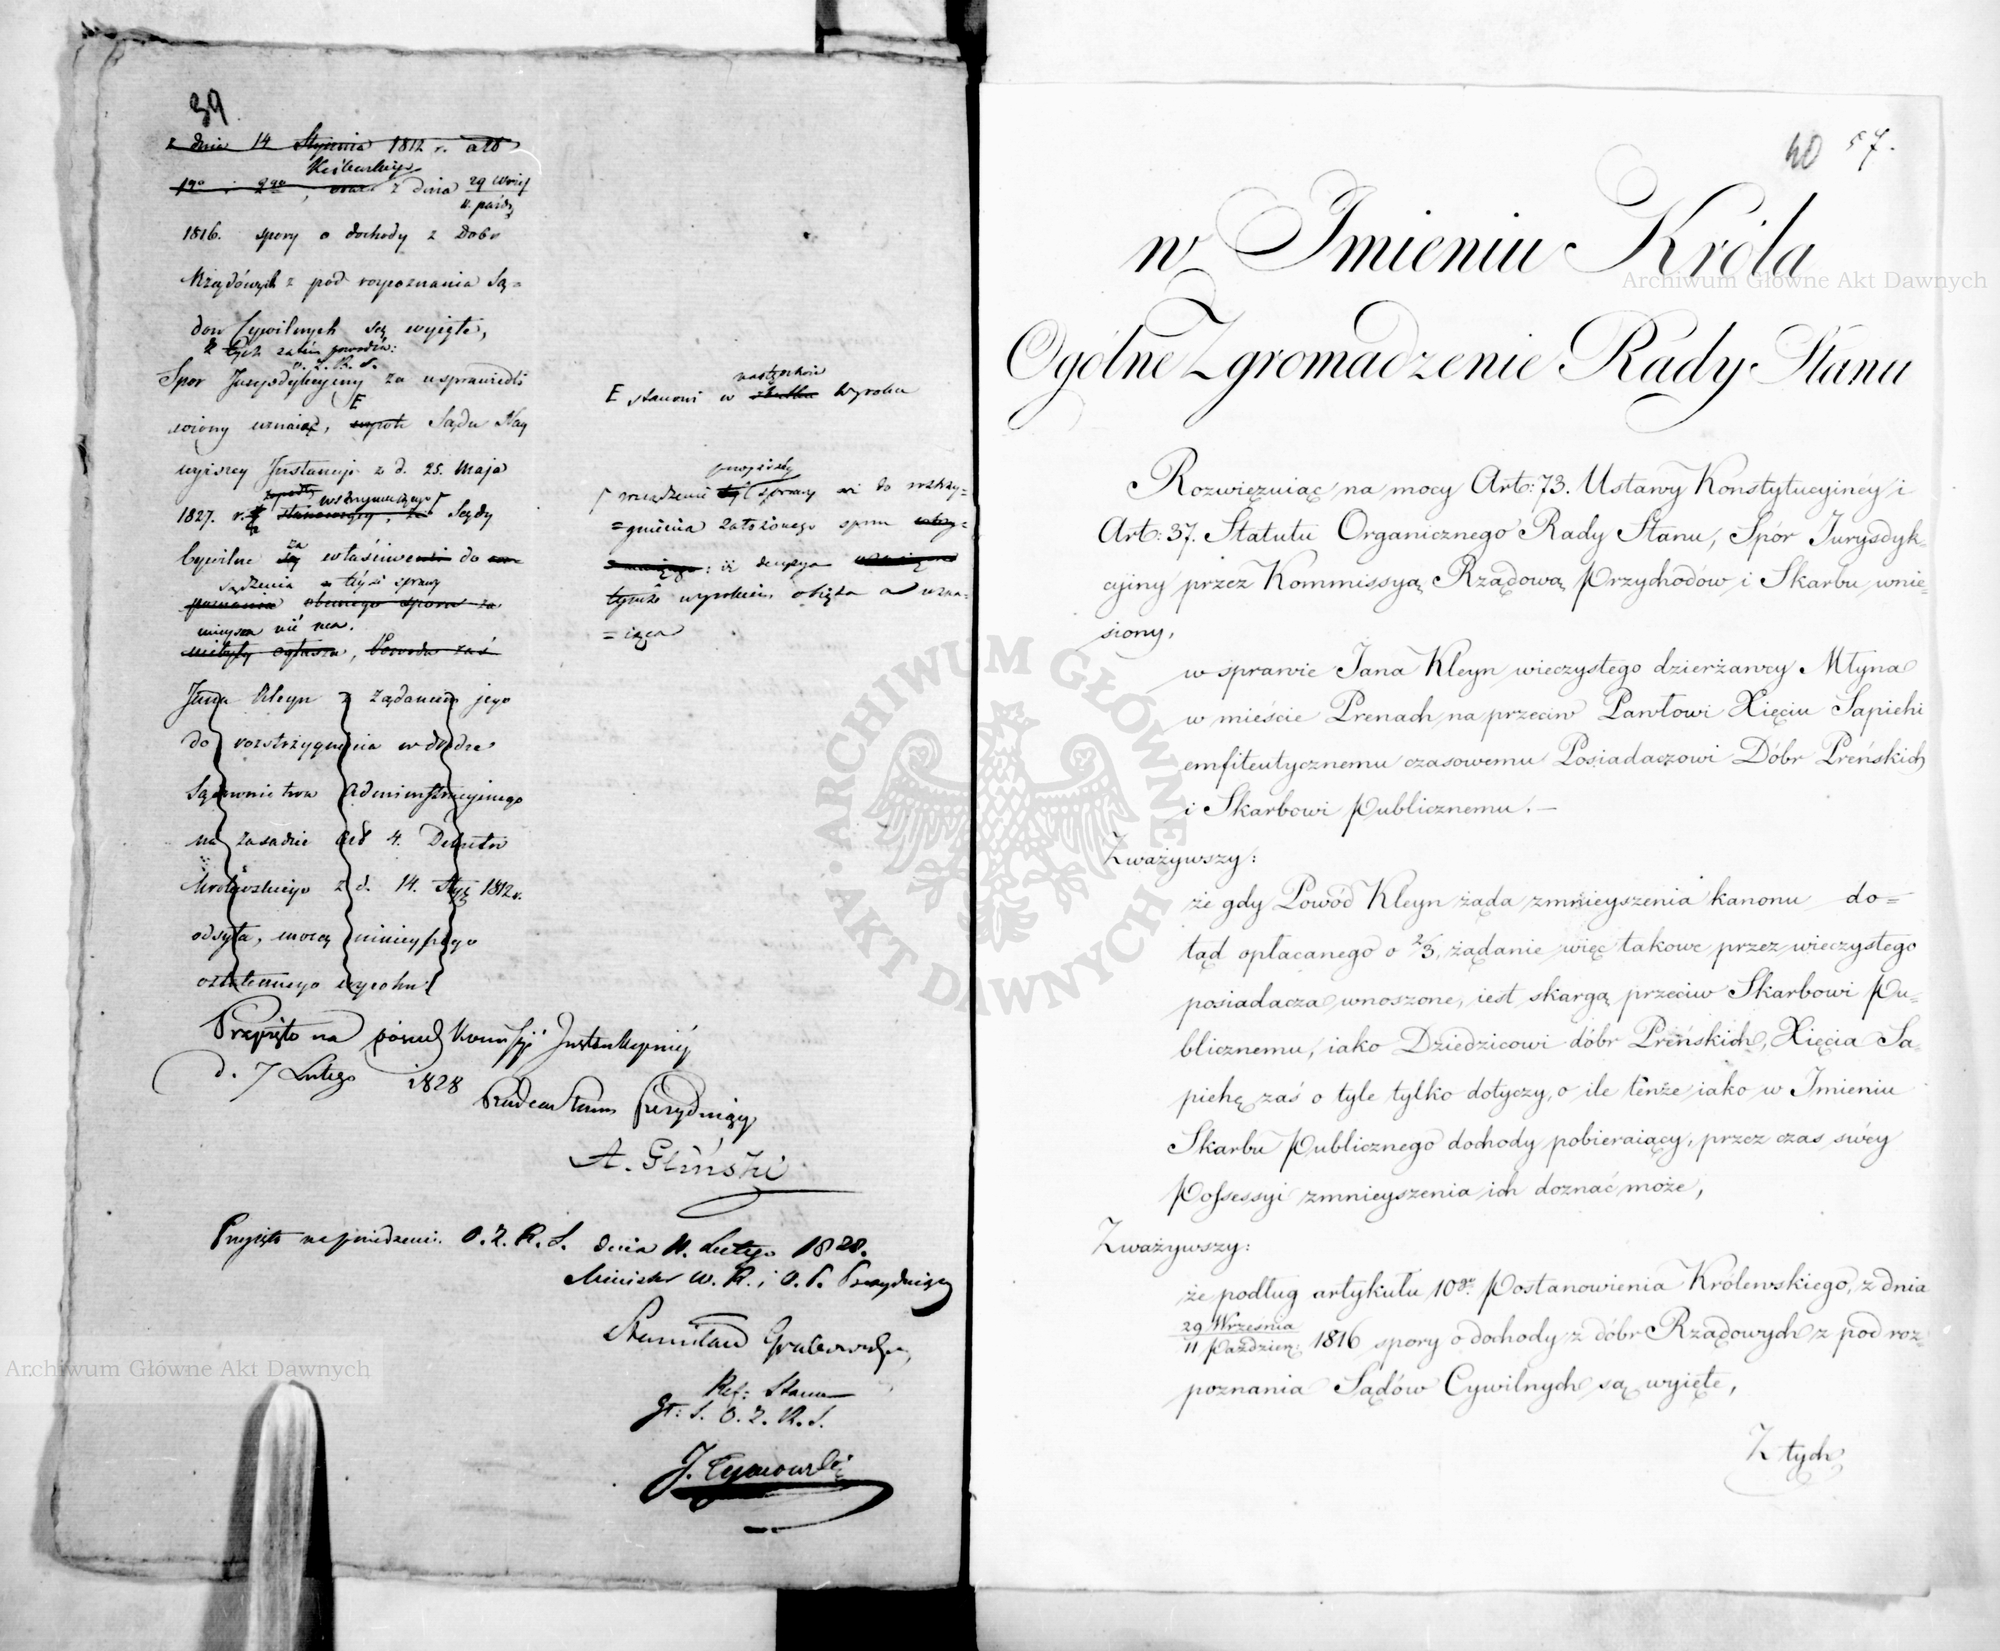 39
z dnia 14 Stycznia 1812 r. art
Królewskiego
1go i 2go, oraz z dnia 29 Wrześ
11 paźdz
1816. spory o dochody z Dobr
Rządówych z pod rozpoznania Są=
dow Cywilnych są wyięte,
Z tych zatem powodów:
O. Z. R. S.
Spor Jurysdykcyjny za usprawiedli
E
wiony uznaiąc, Sądu Nay
wyższey Instancyi z d. 25. Maja
1827. r. Sądy
wstrzymuiącego
Cywilne za właściwe do
sądzenia teyże sprawy
poznania obecnego sporu za
mieysca nie ma.
ogłasza, Powoda zaś
Jana Kleyn z żądaniem jego
do rozstrzygnięcia w drodze
Sądownictwa Administracyinego
na zasadzie art 4. Dekretu
Królewskiego z d. 14. Stycz 1812 r.
odsyła, mocą ninieyszego
ostatecznego wyroku
nastąpienie
E stanowi w skutku Wyroku
powyższey
sprawy aż do rozstrzy=
=gnienia założonego sporu
tymże wyrokiem obięta a uzna=
=iąca
Przyięto na posiedz Komissyi Instrukcyiney
d. 7 Lutego 1828
Radca Stanu Prezyduiący
A. Gliński
Przyięto na posiedzeniu O. Z. R. S. dnia 11. Lutego 1828.
Minister W. R. i O. P. Prezyduiący
Stanisław Grabowski
Ref: Stanu
Z. S. O. Z. R. S.
J. Tymowski
40 57.
w Imieniu Króla
Ogólne Zgromadzenie Rady Stanu
Rozwięzuiąc na mocy Art: 73. Ustawy Konstytucyiney i
Art: 37. Statutu Organicznego Rady Stanu, Spór Jurysdyk=
cyiny przez Kommissyą Rządową Przychodów i Skarbu wnie=
siony,
w sprawie Jana Kleyn wieczystego dzierżawcy Młyna
w mieście Prenach na przeciw Pawłowi Xięciu Sapieki
emfiteutycznemu czasowemu Posiadaczowi Dóbr Preńskich
i Skarbowi Publicznemu. —
Zważywszy:
że gdy Powód Kleyn żąda zmnieyszenia kanonu do=
tąd opłacanego o 2/3, żądanie więc takowe przez wieczystego
posiadacza wnoszone, iest skargą przeciw Skarbowi Pu=
blicznemu, iako Dziedzicowi dóbr Preńskich, Xięcia Sa=
piehę zaś o tyle tylko dotyczy, o ile tenże iako w Imieniu
Skarbu Publicznego dochody pobieraiący, przez czas swey
Possessyi zmnieyszenia ich doznać może,
Zważywszy:
że podług artykułu 10go Postanowienia Królewskiego, z dnia
29 Września
11 Paździer: 1816 spory o dochody z dóbr Rządowych z pod roz=
poznania Sądów Cywilnych są wyięte,
Z tych
Archiwum Główne Akt Dawnych
ARCHIWUM GŁÓWNE AKT DAWNYCH
Archiwum Główne Akt Dawnych